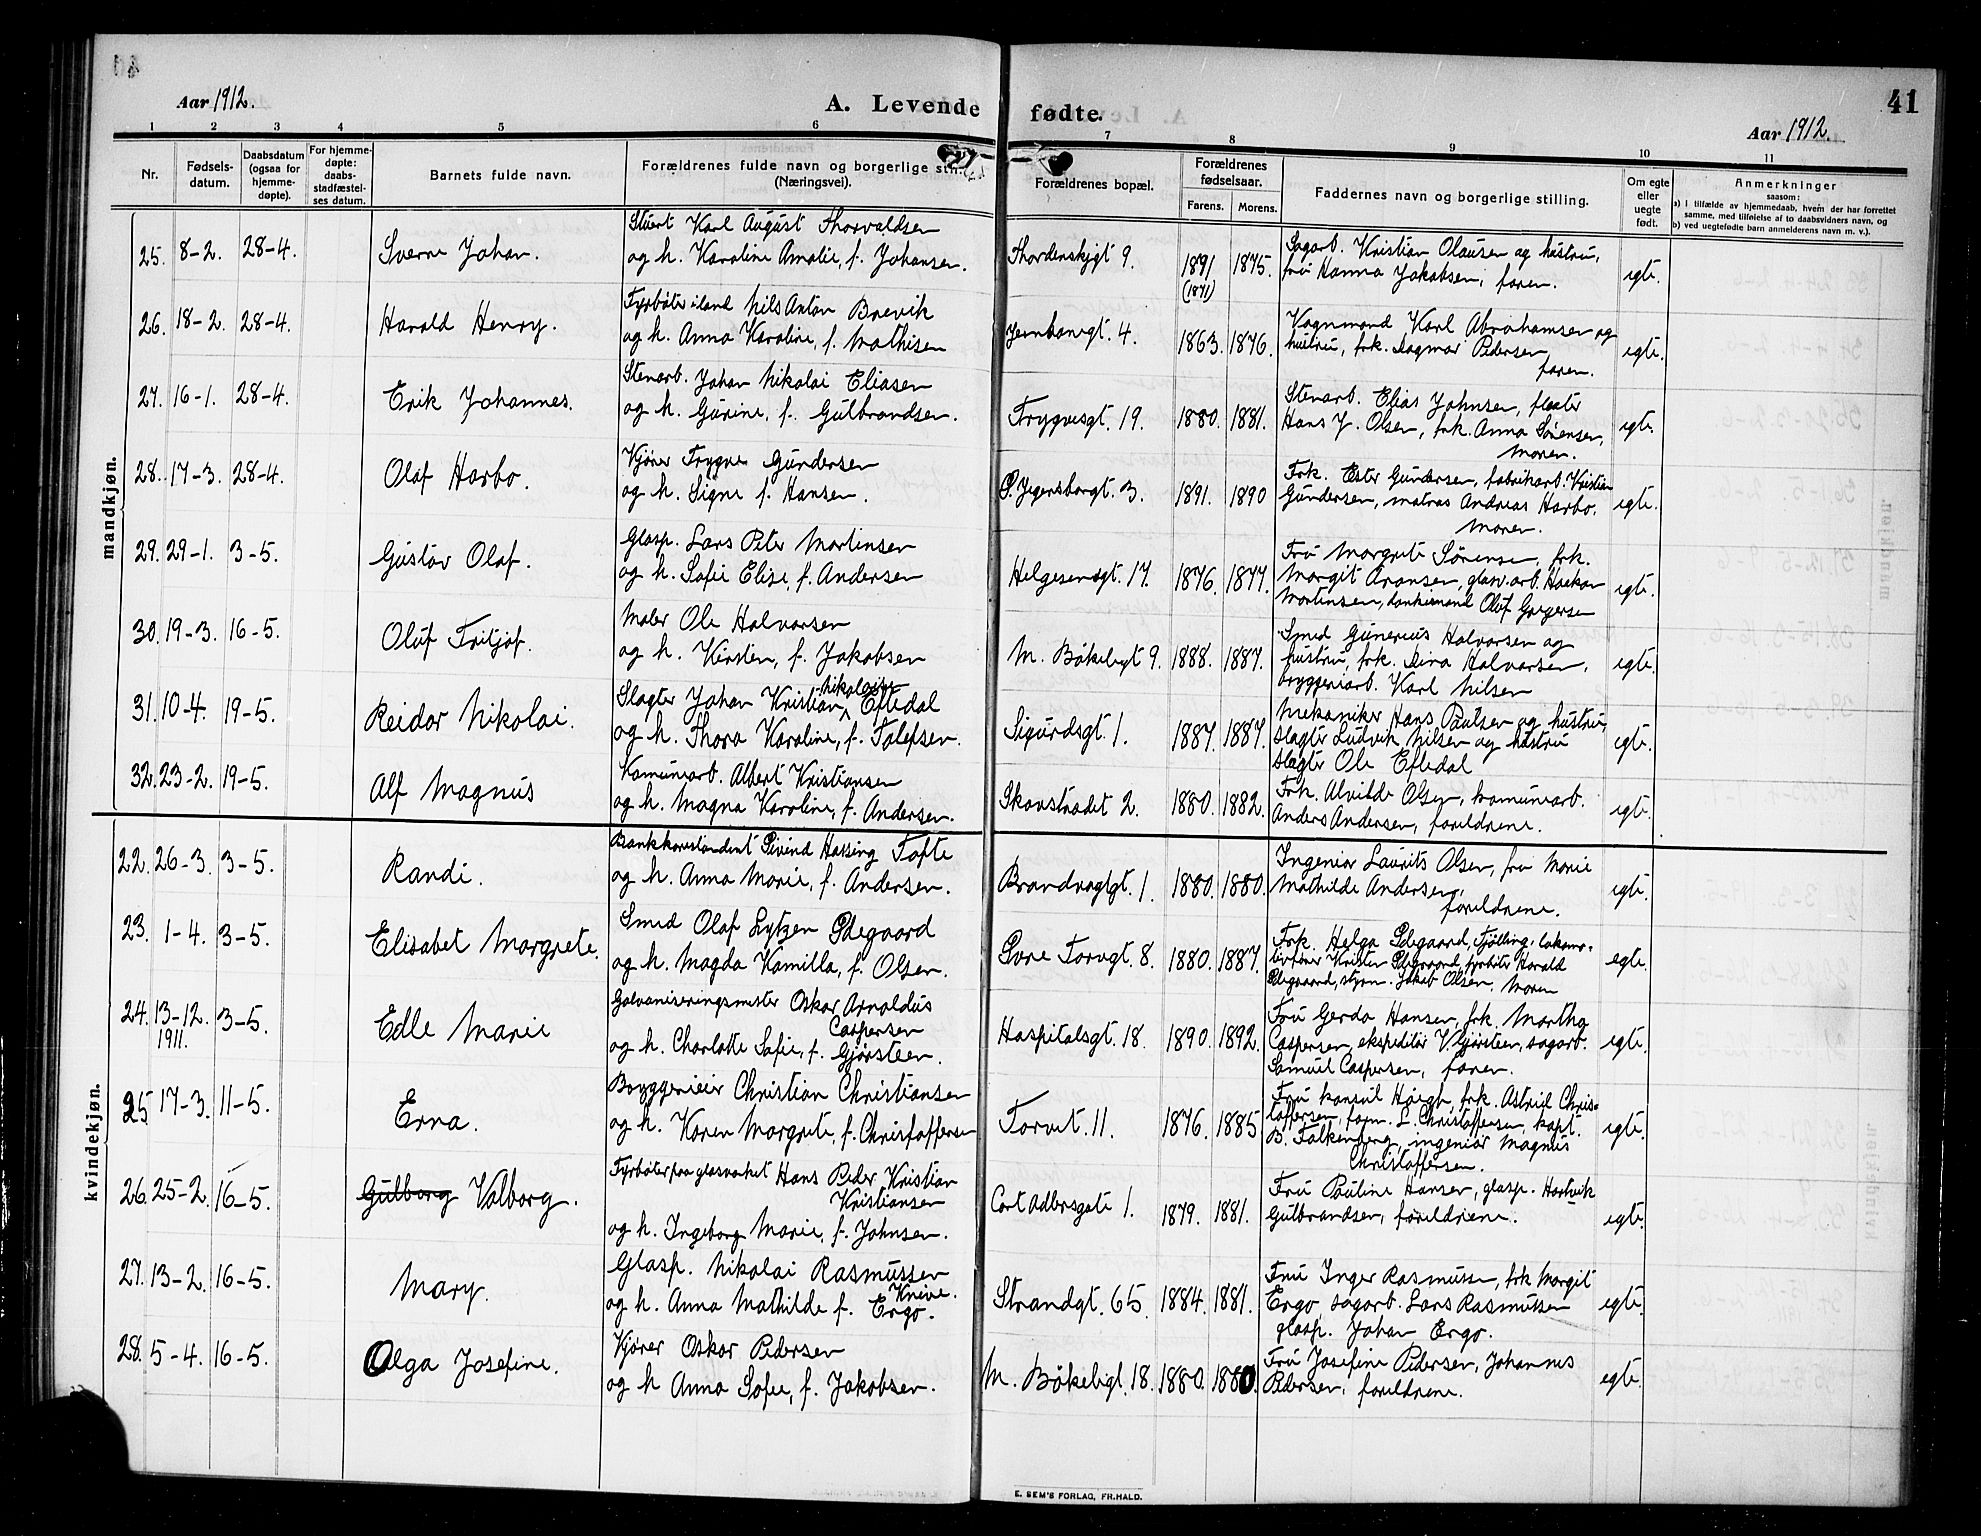 41
Aar 1912.
A. Levende fødte.
Aar 1912.
1 2 3 4 5 6 7 8 9 10 11
Nr.
Fødsels-
datum.
Daabsdatum
(ogsaa for
hjemme-
døpte).
For hjemme-
døpte:
daabs-
stadfæstel-
ses datum.
Barnets fulde navn.
Forældrenes fulde navn og borgerlige stilling
(Næringsvei).
Forældrenes bopæl.
Forældrenes
fødselsaar.
Farens. Morens.
Faddernes navn og borgerlige stilling.
Om egte
eller
uegte
født.
Anmerkninger
saasom:
a) i tilfælde av hjemmedaab, hvem der har forrettet
samme, med tilføielse af to daabsvidners navn, og
b) ved uegtefødte barn anmelderens navn m. v.).
mandkjøn.
25. 8-2. 28-4. Sverre Johan.
Stuert Karl August Thorvaldsen
og h. Karoline Amalie, f. Johansen.
Thordenskjgt 9. 1891 (1871) 1875.
Sagarb. Kristian Olausen og hustru,
fru Hanna Jakobsen, faren.
egte.
26. 18-2. 28-4. Harald Henry.
Fyrbøter iland Nils Anton Brevik
og h. Anna Karoline, f. Mathisen
Jernbanegt. 4. 1863. 1876.
Vognmand Karl Abrahamsen og
hustru, frk. Dagmar Pedersen
faren.
egte.
27. 16-1. 28-4. Erik Johannes.
Stenarb. Johan Nikolai Eliasen
og h. Gurine, f. Gulbrandsen.
Trygvesgt. 19. 1880. 1881.
Stenarb. Elias Johnsen, fløter
Hans J. Olsen, frk. Anna Sørensen,
moren.
egte.
28. 17-3. 28-4. Olaf Harbo.
Kjører Trygve Gundersen
og h. Signe f. Hansen.
Ø. Jegersborgt. 3. 1891. 1890
Frk. Ester Gundersen, fabrikarb. Kristian
Gundersen, matros Andreas Harbo.
moren.
egte.
29. 29-1. 3-5. Gustav Olaf.
Glasp. Lars Peter Martinsen
og h. Sofie Elise, f. Andersen
Helgesensgt. 17. 1876. 1877.
Fru Margrete Sørensen, frk.
Margit Aronsen, glasv.arb. Haakon
Martinsen, Oluf Gregersen
egte.
30. 19-3. 16-5. Oluf Fritjof.
Maler Ole Halvorsen
og h. Kirsten, f. Jakobsen
M. Bökeligt 9. 1888. 1887.
Smed Gunerius Halvorsen og
hustru, frk. Dina Halvorsen,
bryggeriarb. Karl Nilsen
egte.
31. 10-4. 19-5. Reidar Nikolai.
Nikolaisen
Slagter Johan Kristian Eftedal
og h. Thora Karoline, f. Tolefsen.
Sigurdsgt. 1. 1887. 1887.
Mekaniker Hans Paulsen og hustru,
slagter Ludvik Nilsen og hustru
slagter Ole Eftedal
egte.
32. 23-2. 19-5. Alf Magnus
Komunearb. Albert Kristiansen
og h. Magna Karoline, f. Andersen.
Skovstrædet 2. 1880. 1882.
Frk. Alvilde Olsen, komunearb.
Anders Andersen, forældrene.
egte.
kvindekjøn.
22. 26-3. 3-5. Randi.
Bankkorrespondent Eivind Hassing Tofte
og h. Anna Marie, f. Andersen.
Brandvagtgt. 1. 1880. 1880.
Ingeniør Laurits Olsen, fru Marie
Mathilde Andersen,
forældrene.
egte.
23. 1-4. 3-5. Elisabet Margrete.
Smed Olaf Lytzen Ødegaard
og h. Magda Kamilla, f. Olsen.
Øvre Torvgt. 8. 1880. 1887.
Frk. Helga Ødegaard, Tjølling, lokomo-
tivfører Kristen Ødegaard, fyrbøter Harald
Ødegaard, styrm. Jakob Olsen, moren
egte.
24. 13-12. 1911. 3-5. Edle Marie
Galvaniseringsmester Oskar Arnoldus
Caspersen
og h. Charlotte Sofie, f. Gjørsteen.
Hospitalsgt. 18. 1890. 1892.
Fru Gerda Hansen, frk. Martha
Caspersen, ekspeditør V. Gjørsteen, sagarb.
Samuel Caspersen, faren.
egte.
25 17-3. 11-5. Erna.
Bryggerieier Christian Christiansen
og h. Karen Margrete, f. Christoffersen
Torvet. 11. 1876. 1885
Fru konsul Høegh, frk. Astrid Chris-
toffersen, L. Christoffersen, kapt.
B. Falkenberg, ingeniør Magnus
Christoffersen.
egte.
26. 25-2. 16-5. Gulborg Valborg.
Fyrbøter paa glasverket Hans Peder Kristian
Kristiansen
og h. Ingeborg Marie, f. Johnsen.
Cort Adlersgate 1. 1879. 1881.
Fru Pauline Hansen, glasp. Hartvik
Gulbrandsen, forældrene.
egte.
27. 13-2. 16-5. Mary.
Glasp. Nikolai Rasmussen
og h. Anna Mathilde f. Ergo.
Knive.
Strandgt. 65. 1884. 1881.
Fru Inger Rasmussen, frk Margit
Ergo, sagarb. Lars Rasmussen
glasp. Johan Ergo.
egte.
28. 5-4. 16-5. Olga Josefine.
Kjører Oskar Pedersen
og h Anna Sofie, f. Jakobsen.
M. Bökeligt. 18. 1880. 1880.
Fru Josefine Pedersen, Johannes
Pedersen, forældrene.
egte.
E. SEM'S FORLAG, FR.HALD.